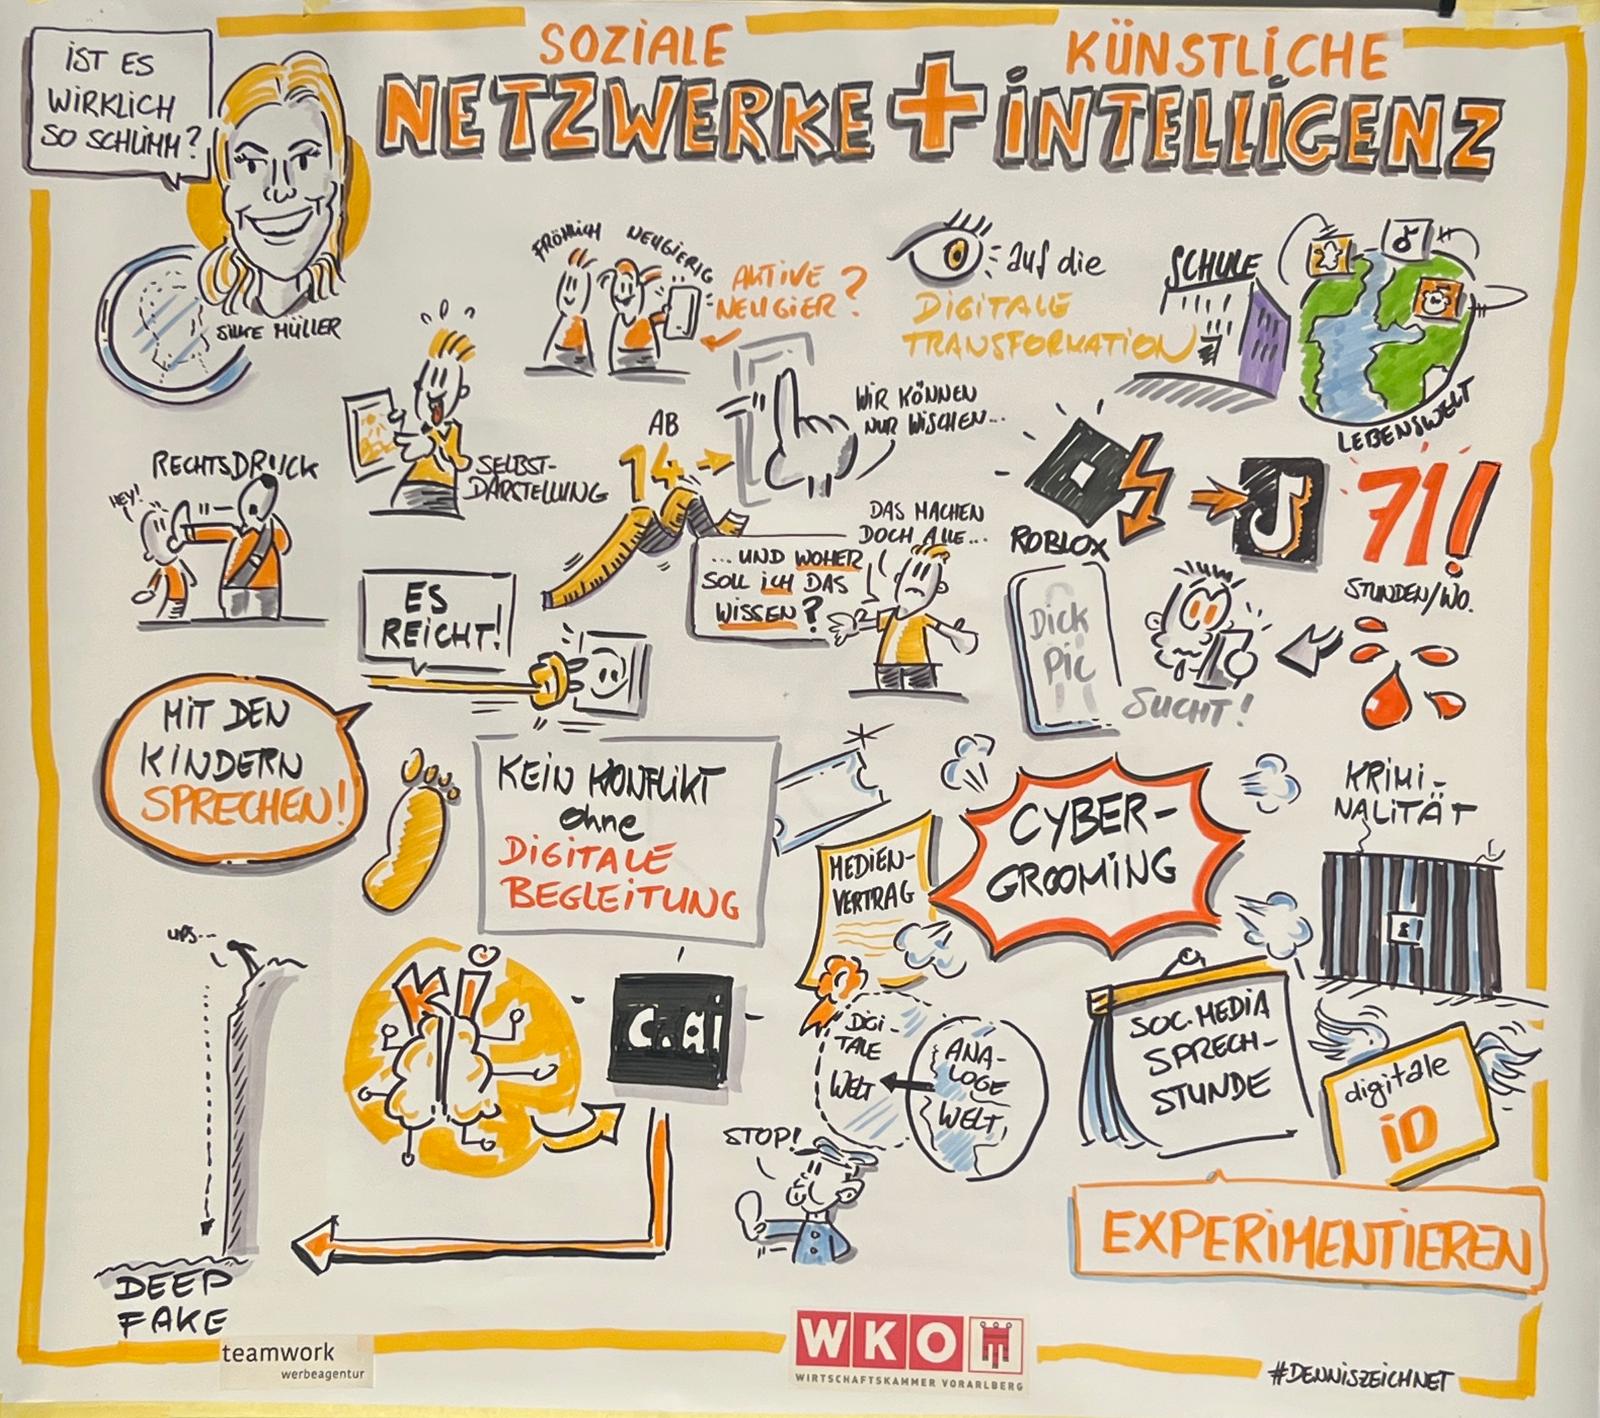 SOZIALE
NETZWERKE + KÜNSTLICHE
INTELLIGENZ
IST ES
WIRKLICH
SO SCHLIMM?
SILKE MÜLLER
FRÖHLICH
NEUGIERIG
AKTIVE
NEUGIER?
auf die
DIGITALE
TRANSFORMATION
SCHULE
LEBENSWELT
SELBST-
DARSTELLUNG
AB
14
WIR KÖNNEN
NUR WISCHEN...
RECHTSDRUCK
HEY!
DAS MACHEN
DOCH ALLE...
... UND WOHER
SOLL ICH DAS
WISSEN?
ROBLOX
71!
STUNDEN/WO.
ES
REICHT!
Dick
Pic
SUCHT!
MIT DEN
KINDERN
SPRECHEN!
KEIN KONFLIKT
ohne
DIGITALE
BEGLEITUNG
MEDIEN-
VERTRAG
CYBER-
GROOMING
KRIMI-
NALITÄT
UPS...
KI
c.ai
DIGI-
TALE
WELT
ANA-
LOGE
WELT
SOC. MEDIA
SPRECH-
STUNDE
digitale
iD
STOP!
EXPERIMENTIEREN
DEEP
FAKE
teamwork
werbeagentur
WKO
WIRTSCHAFTSKAMMER VORARLBERG
#DENNISZEICHNET